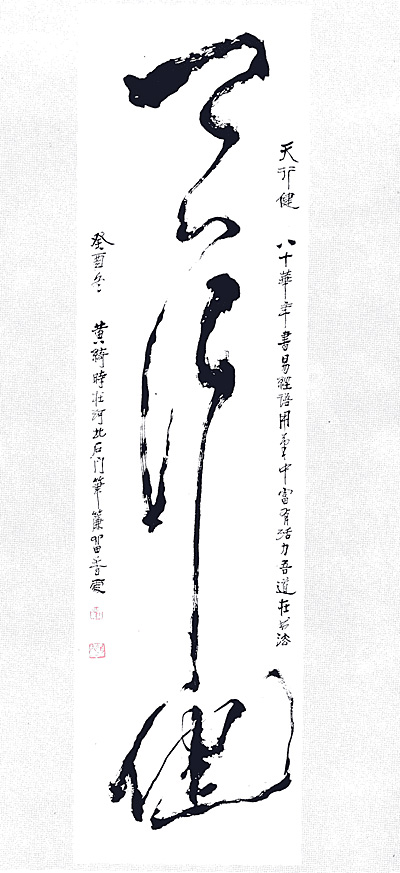 天行健
天行健
八十華年書易經語用筆中富有活力吾道在書法
癸酉冬
黄綺時在河北石門筆簾留香處